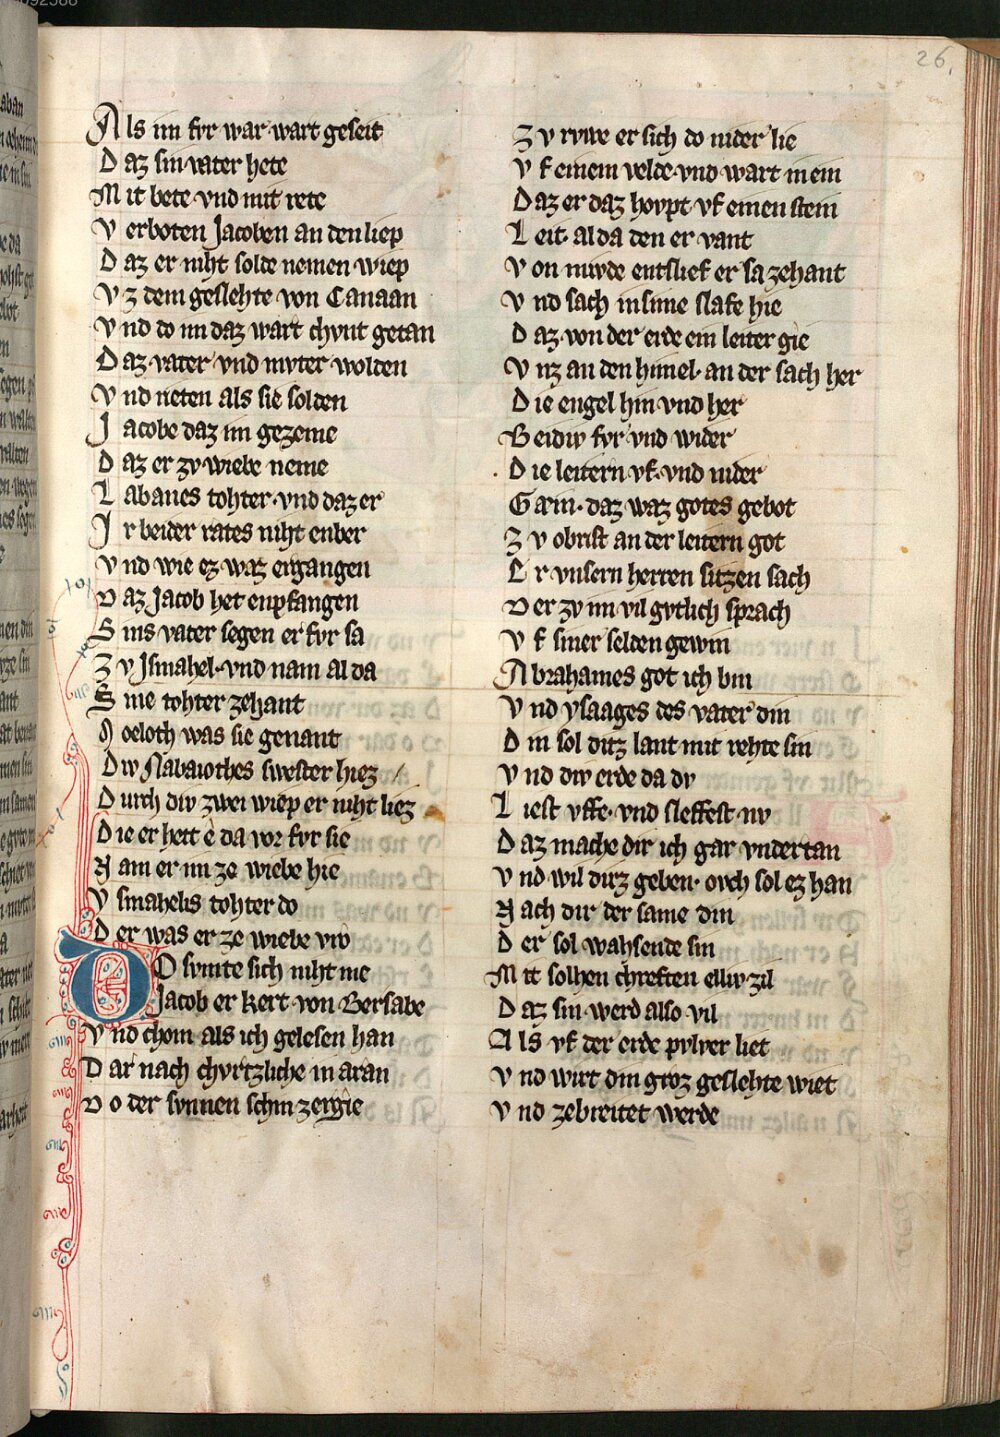 26.
Als im fvr war wart geseit
Daz sin vater hete
Mit bete vnd mit rete
Verboten Jacoben an den liep
Daz er niht solde nemen wiep
Vz dem geslehte von Canaan
Vnd do im daz wart chvnt getan
Daz vater vnd mvter wolden
Vnd rieten als sie solden
Jacobe daz im gezeme
Daz er zv wiebe neme
Labanes tohter vnd daz er
Ir beider rates niht enber
Vnd wie ez waz ergangen
Daz Jacob het enpfangen
Sins vater segen er fvr sa
Zv Jsmahel vnd nam al da
Sine tohter zehant
Moeloth was sie genant
Div Nabaiothes swester hiez
Durch div zwei wiep er niht liez
Die er hett e da vor fvr sie
Nam er im ze wiebe hie
Ysmahelis tohter do
Der was er ze wiebe vro
Do svmte sich niht me
Jacob er kert von Bersabe
Vnd chom als ich gelesen han
Dar nach chvrtzliche in aran
Do der svnnen schin zergie
Zv rvwe er sich do nider lie
Vf einem velde vnd wart in ein
Daz er daz hovpt vf einen stein
Leit al da den er vant
Von mvde entslief er sa zehant
Vnd sach in sime slafe hie
Daz von der erde ein leiter gie
Vnz an den himel an der sach her
Die engel hin vnd her
Beidiv fvr vnd wider
Die leitern vf vnd nider
Garn daz waz gotes gebot
Zv obrist an der leitern got
Er vnsern herren sitzen sach
Der zv im vil gvtlich sprach
Vf siner selden gewin
Abrahames got ich bin
Vnd ysaages des vater din
Din sol ditz lant mit rehte sin
Vnd div erde da dv
List vffe vnd sleffest nv
Daz mache dir ich gar vndertan
Vnd wil dirz geben ovch sol ez han
Nach dir der same din
Der sol wahsende sin
Mit solhen chreften elliv zil
Daz sin werd also vil
Als vf der erde pvlver liet
Vnd wirt din groz geslehte wiet
Vnd zebreitet werde